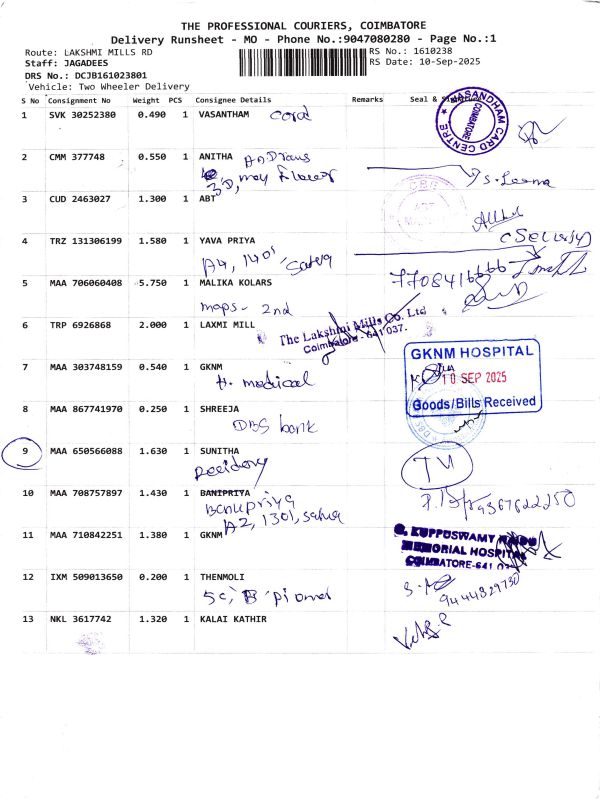 THE PROFESSIONAL COURIERS, COIMBATORE
Delivery Runsheet - MO - Phone No.:9047080280 - Page No.:1
Route: LAKSHMI MILLS RD
RS No.: 1610238
Staff: JAGADEES
RS Date: 10-Sep-2025
DRS No.: DCJB161023801
Vehicle: Two Wheeler Delivery
S No Consignment No Weight PCS Consignee Details Remarks Seal &
1 SVK 30252380 0.490 1 VASANTHAM
MASANDHAM CARD CENTRE
COIMBATORE
2 CMM 377748 0.550 1 ANITHA
3 CUD 2463027 1.300 1 ABT
4 TRZ 131306199 1.580 1 YAVA PRIYA
A4, 1401,
5 MAA 706060408 5.750 1 MALIKA KOLARS
7708416666
maps - 2nd
6 TRP 6926868 2.000 1 LAXMI MILL
The Lakshmi Mills Co. Ltd
Coimbatore - 641 037.
7 MAA 303748159 0.540 1 GKNM
medical
GKNM HOSPITAL
10 SEP 2025
Goods/Bills Received
8 MAA 867741970 0.250 1 SHREEJA
DBS bank
9 MAA 650566088 1.630 1 SUNITHA
10 MAA 708757897 1.430 1 BANIPRIYA
Banupriya
A2, 1301,
11 MAA 710842251 1.380 1 GKNM
G. KUPPUSWAMY NAIDU
MEMORIAL HOSPITAL
COIMBATORE-641 03
12 IXM 509013650 0.200 1 THENMOLI
9444329730
13 NKL 3617742 1.320 1 KALAI KATHIR